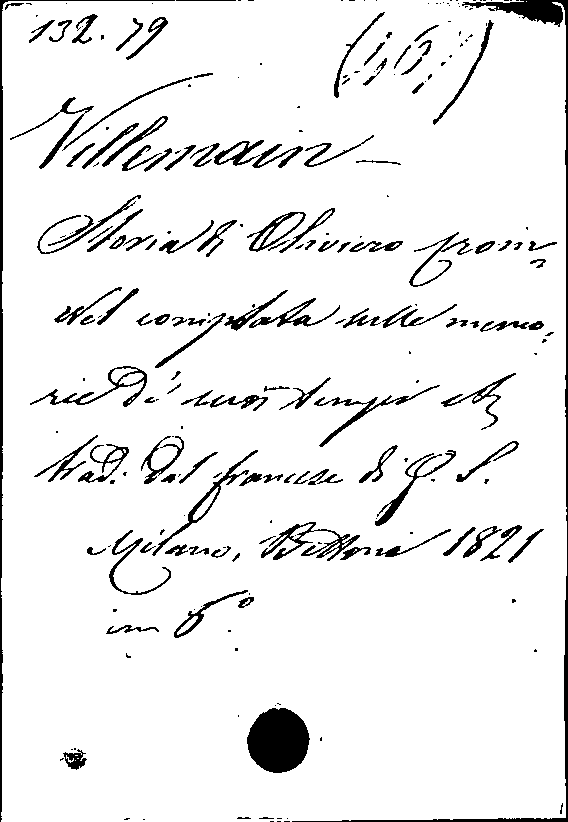 132. 79
Villemain —
Storia di Oliviero Crom=
wel compilata sulle memo=
rie de' suoi tempi etc
trad. dal francese di G. S.
Milano, Bettoni 1821
in 8°.